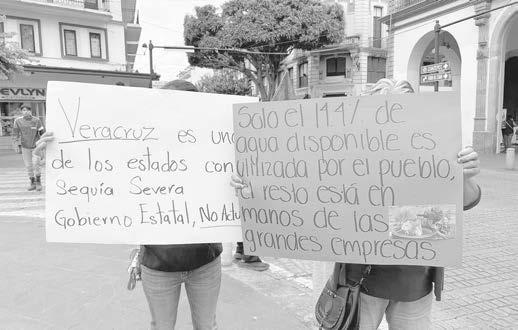 EVLYN
Veracruz es uno
de los estados con
Sequía Severa
Gobierno Estatal, No Actú
Solo el 14.4% de
agua disponible es
utilizada por el pueblo,
el resto está en
manos de las
grandes empresas